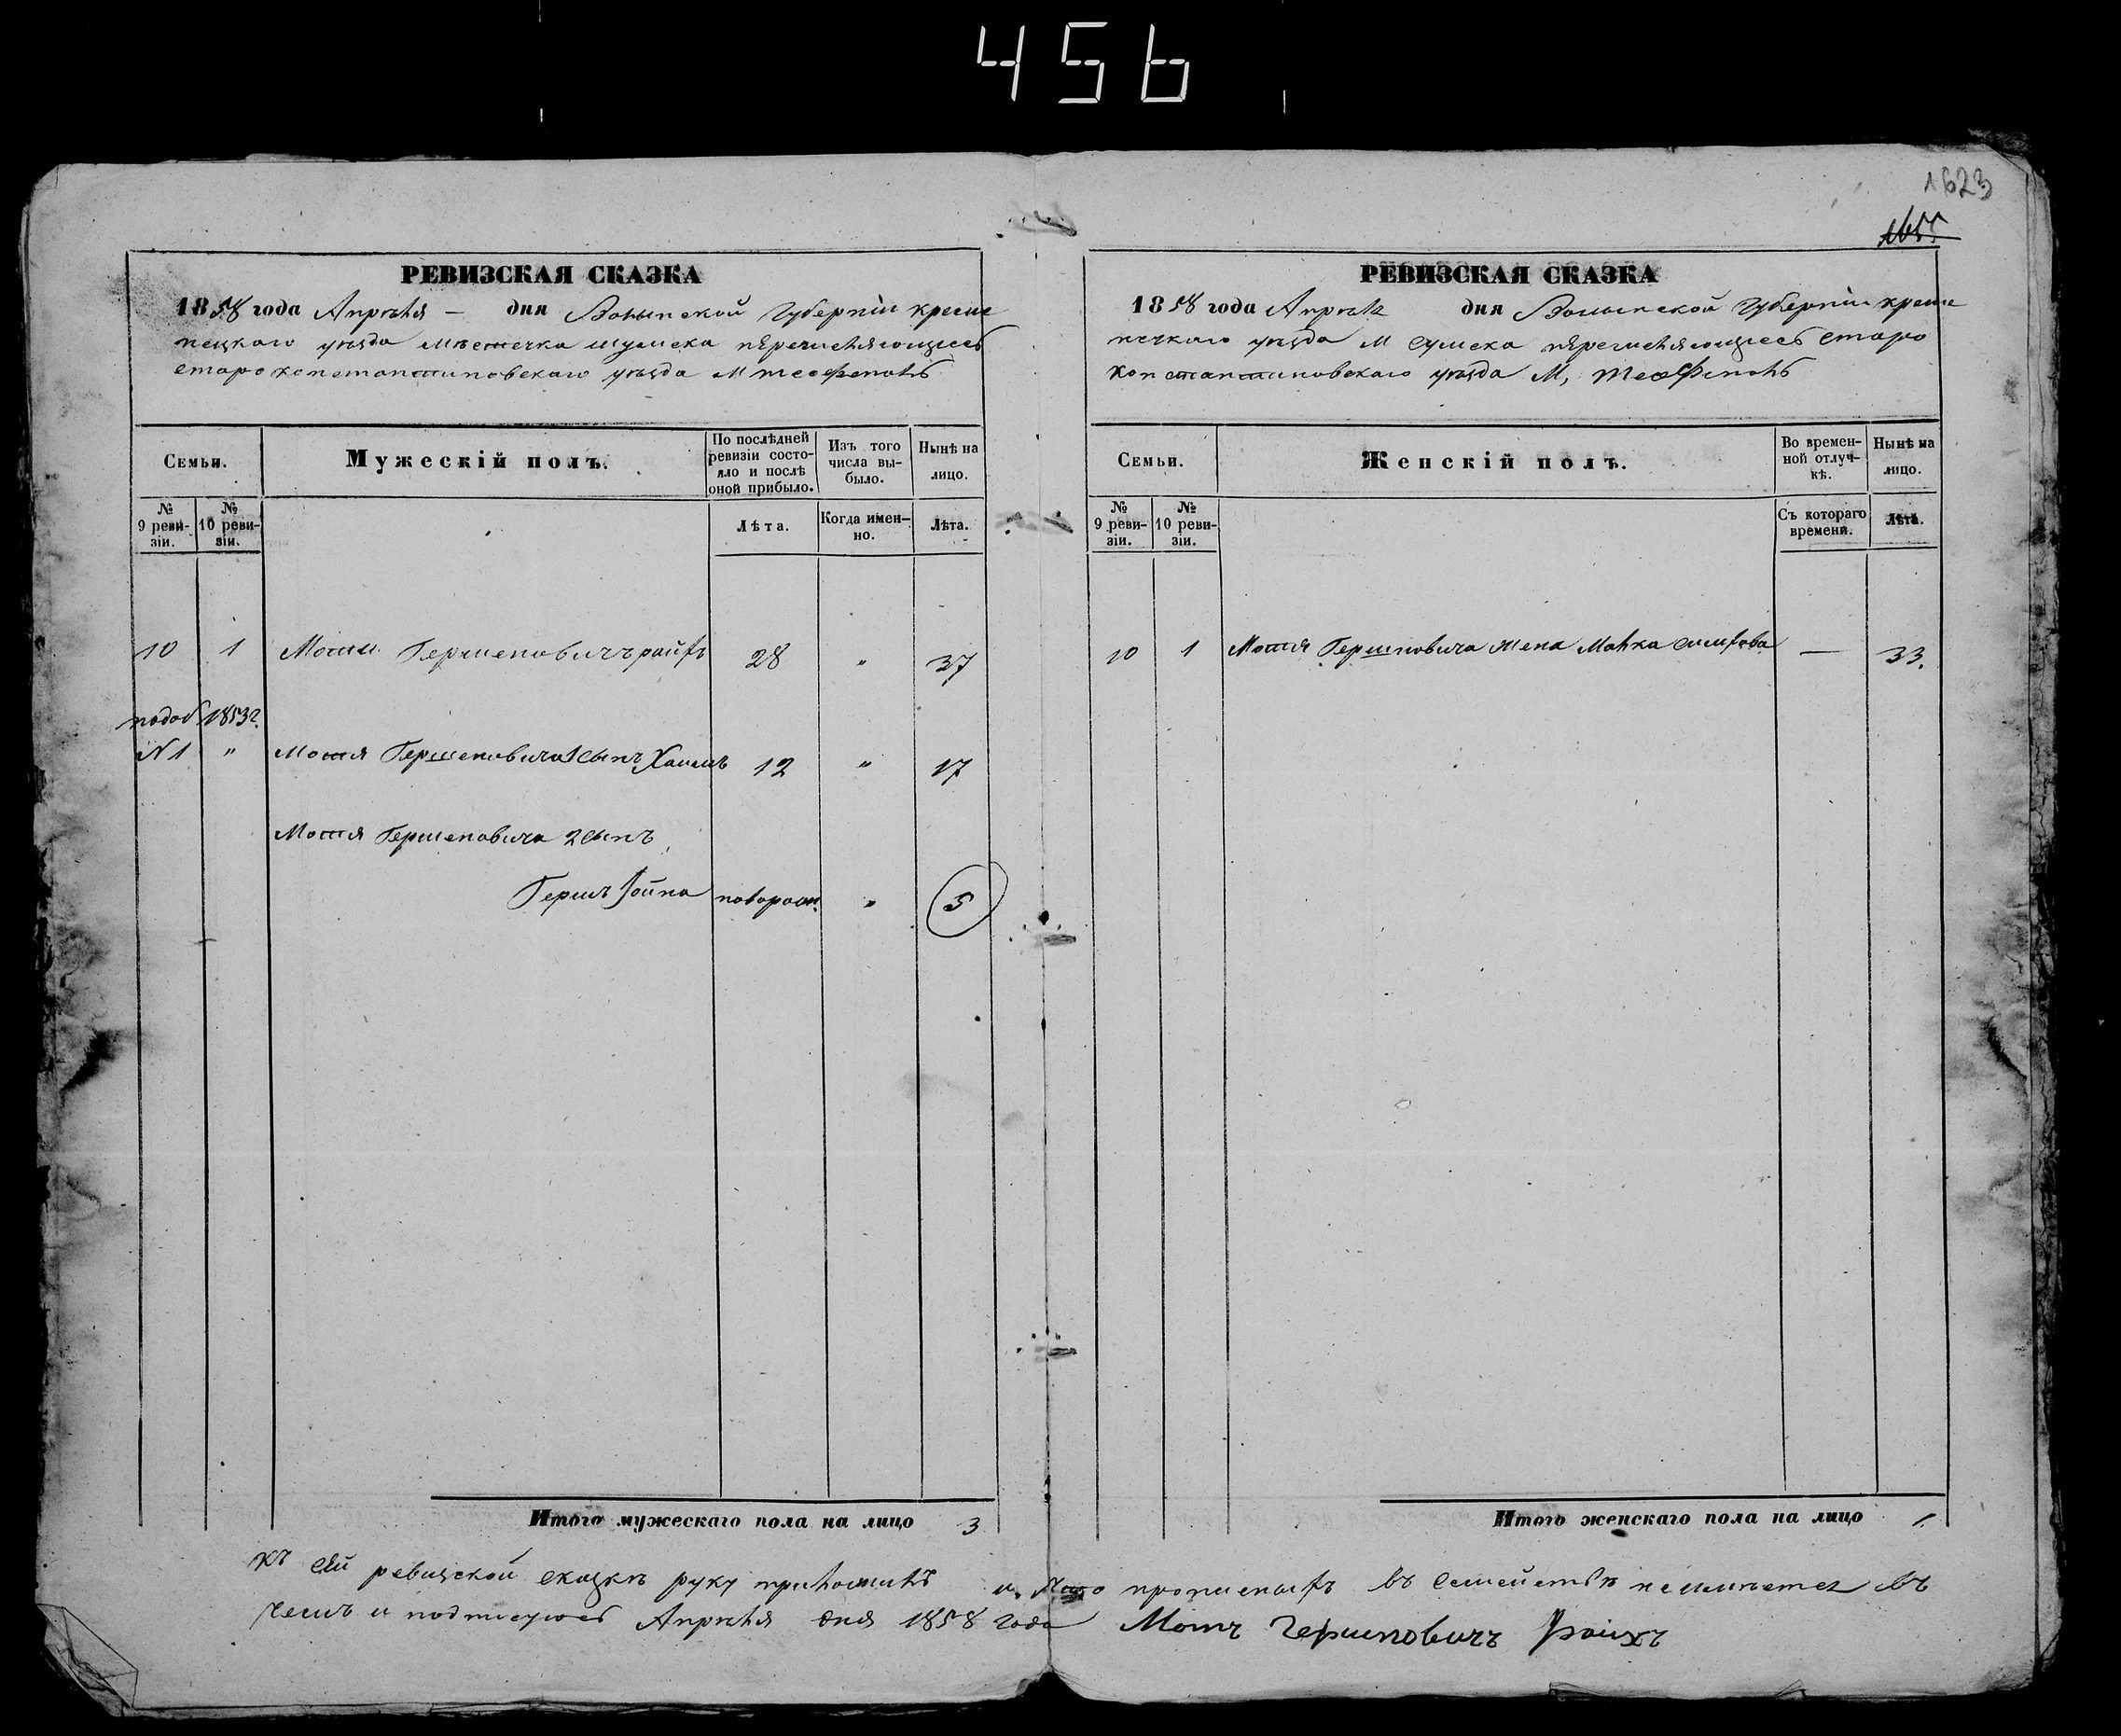 456
1623
РЕВИЗСКАЯ СКАЗКА
1858 года Апрѣля — дня Волынской Губерніи креме
нецкаго уѣзда мѣстечка шумска перечисляющіесь
старо константиновскаго уѣзда М теофеполь
Семьи.
Мужескій полъ.
По послѣдней ревизіи состояло и послѣ оной прибыло.
Изъ того числа выбыло.
Нынѣ на лицо.
№ 9 ревизіи.
№ 10 ревизіи.
Лѣта.
Когда именно.
Лѣта.
10 1 Мошя Гершеновичъ 28 " 37
1853 г.
N 1 " Мошя Гершеновича 1 сынъ Хаимъ 12 " 17
Мошя Гершеновича 2 сынъ
Гершъ новорож. " 5
Итого мужескаго пола на лицо 3
РЕВИЗСКАЯ СКАЗКА
1858 года Апрѣля дня Волынской Губерніи креме
нецкаго уѣзда М сумска перечисляющіесь старо
константиновскаго уѣзда М, теофиполь
Семьи.
Женскій полъ.
Во временной отлучкѣ.
Нынѣ на лицо.
№ 9 ревизіи.
№ 10 ревизіи.
Съ котораго времени.
Лѣта.
10 1 Мошя Гершновича жена Малка — 33.
Итого женскаго пола на лицо 1.
къ сей ревизской сказкѣ руку приложилъ въ семействѣ неимѣется въ
чемъ и подписуюсь Апрѣля дня 1858 года Мошъ Гершповичъ